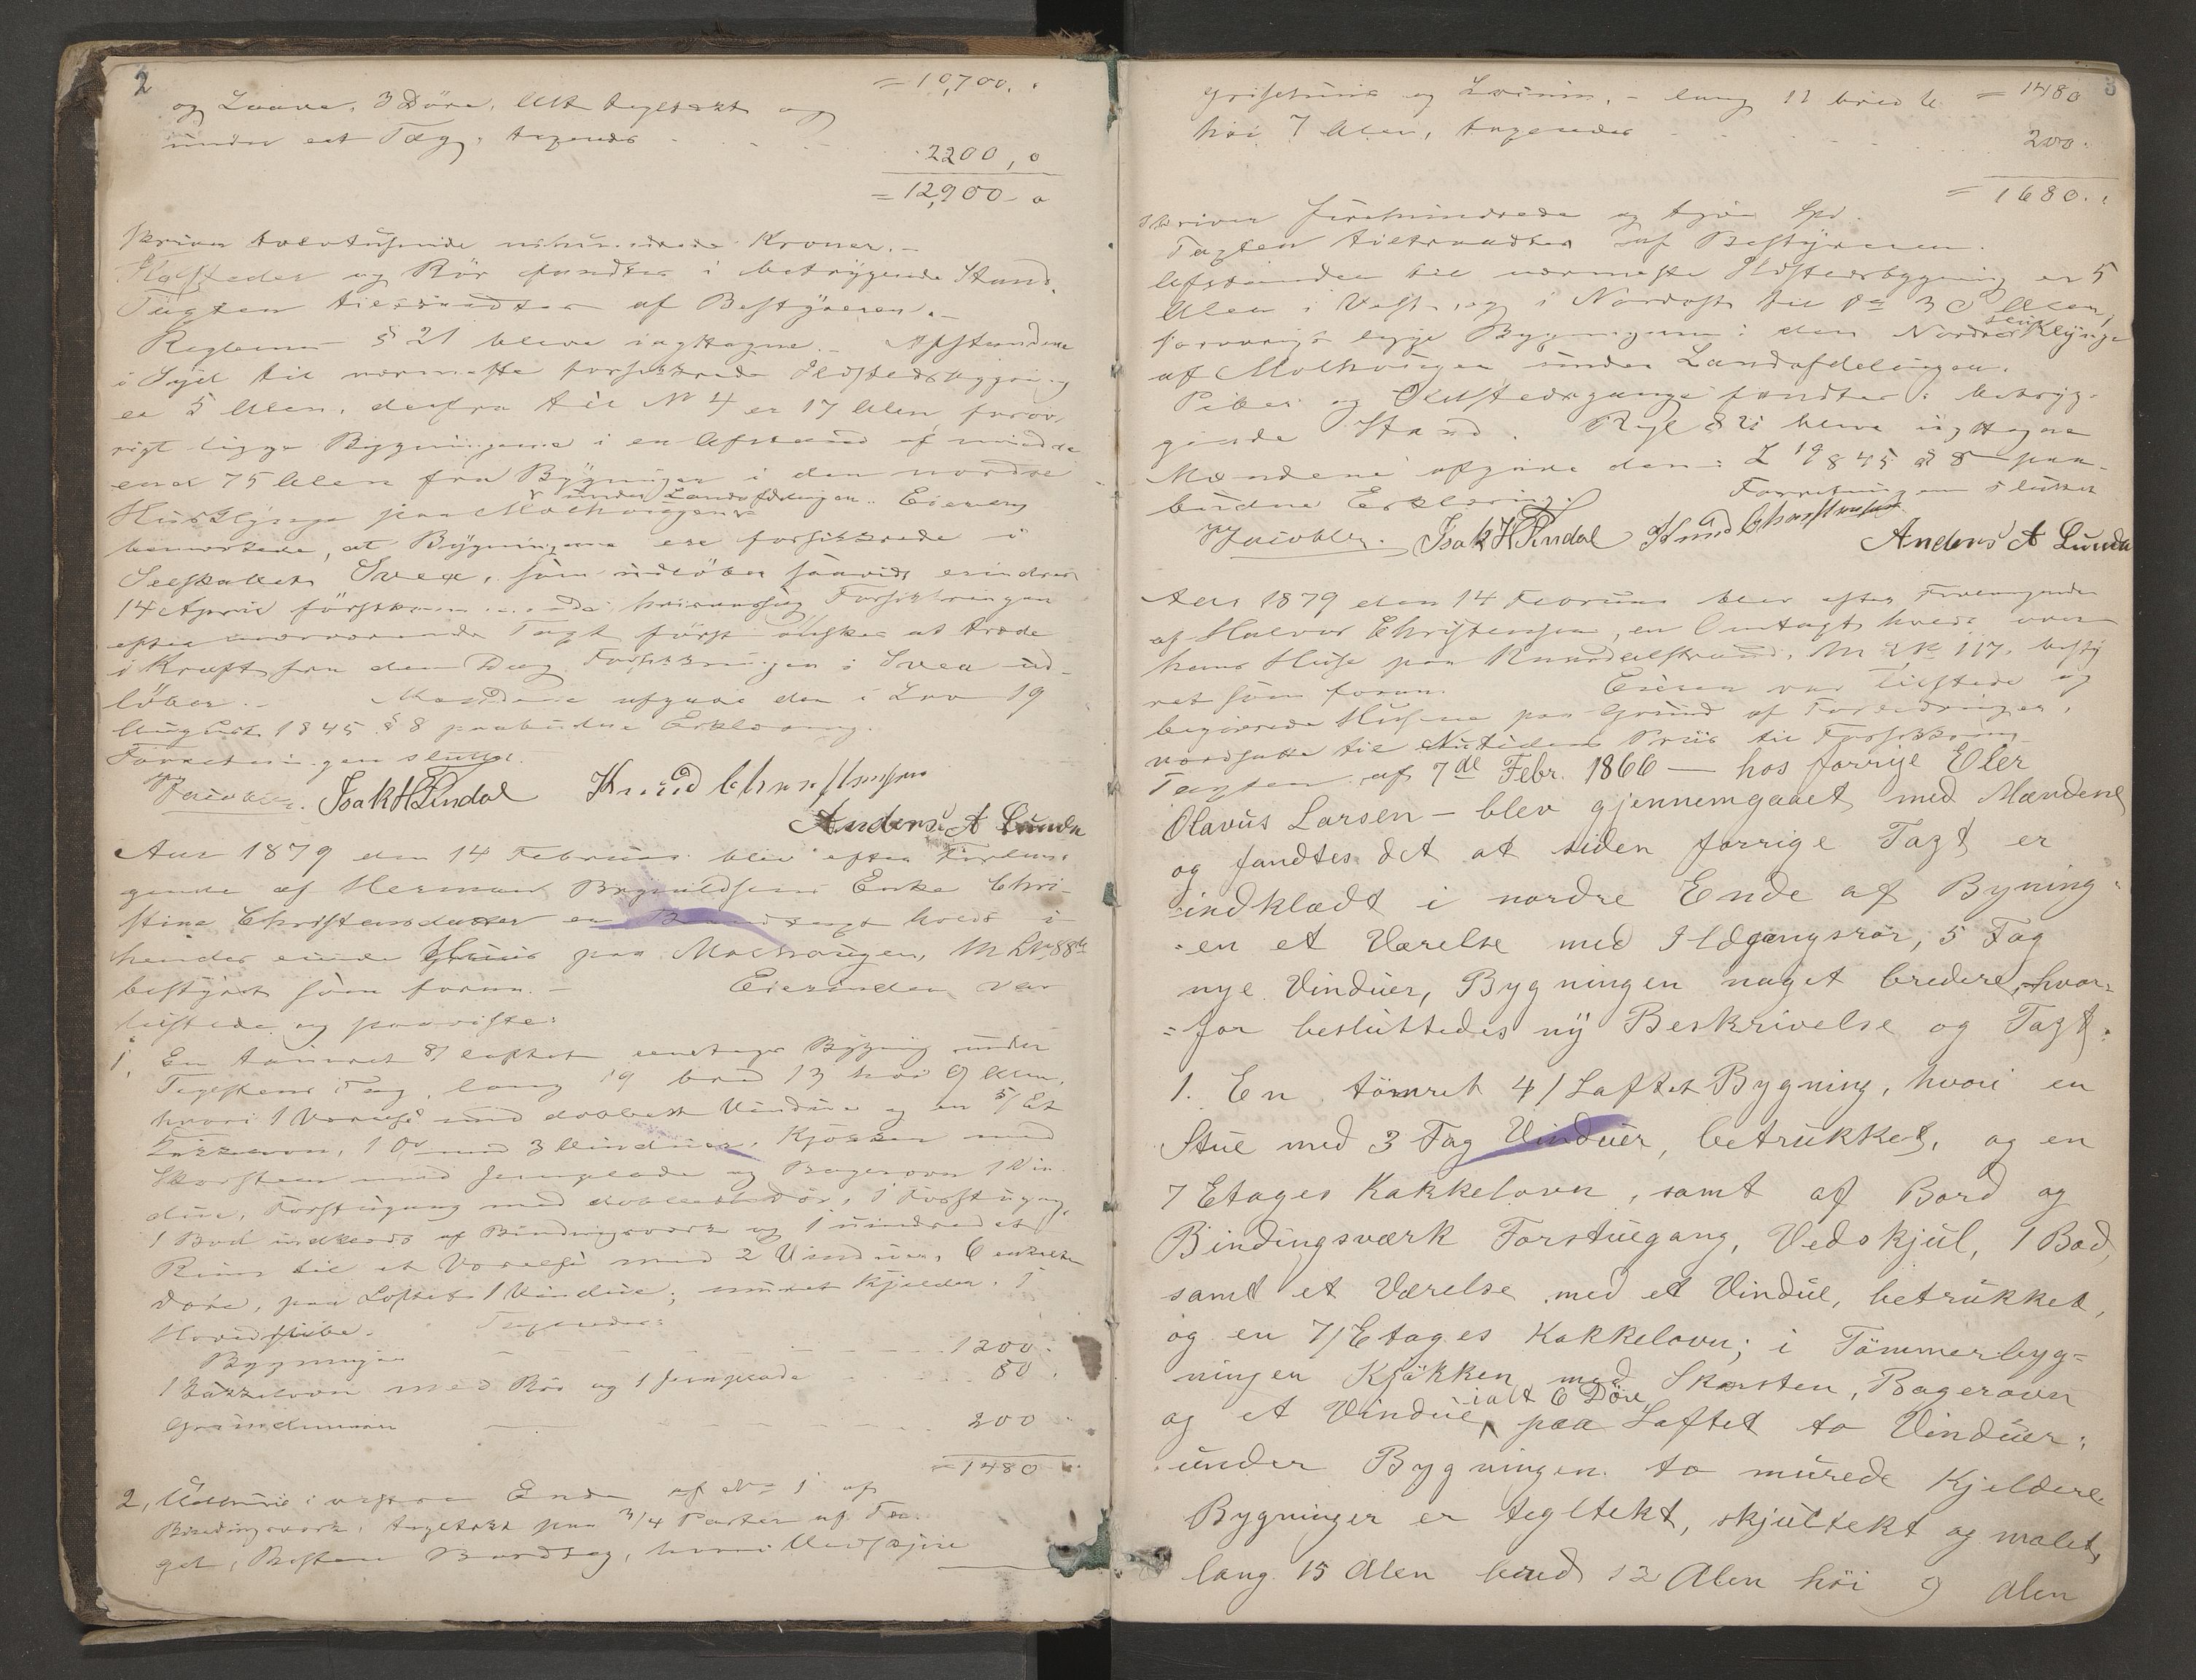 2
= 10,700. "
og Laave, 3 Døre, Alt tegltækt og
under eet Tag, taxeredes
2200, o
= 12,900 - o
skriver tolvtusinde nihundrede Kroner. -
Ildsteder og Rør fandtes i betryggende Stand.
Taxten tiltraadtes af Bestÿreren. -
Reglem § 21 bleve iagttagne. - Afstandene
i Syd til nærmeste forsikkrede Ildstedsbygning
er 5 Alen, derfra til No 4 er 17 Alen, forøv-
rigt ligge Bygningerne i en Afstand af mindre
end 75 Alen fra Bygninger i den nordre
Husklynge paa Molhougen under Landafdelingen. Eieren
bemærkede, at Bygningerne ere forsikkrede i
Selskabet Svea, som udløber saavidt erindres
14 April førstkommende, hvisaarsag Forsikkringen
efter nærværende Taxt først ønskes at træde
i Kraft fra den Dag Forsikkringen i Svea ud-
løber. - Mændene afgave den i Lov 19
August 1845 § 8 paabudne Erklæring.
Forretningen sluttet.
Jacobsen. Isak H Lindal Knud Christensen
Anders A Lunde
Aar 1879 den 14 Februar blev efter Forlan-
gende af Herman Brynildsens Enke Chri-
stine Christensdatter en Brandtaxt holdt i
hendes eiende Huus paa Molhougen, M No 88
bestÿret som foran. - Eierinden var
tilstede og paaviste:
1. En tømret 8/ laftet eenetages Bygning under
Teglsteens Tag, lang 19 bred 13 høi 9 Alen,
hvori 1 Værelse med dobbelt Vindue og en 3/ Et
Kakkelovn, 1 Do med 3 Vinduer, Kjøkken med
Skorsteen med Jernplade og Bagerovn 1 Vin-
due, Forstugang med dobbelt Dør, 1 Forstugang,
1 Bod indklædt af Bindingsværk og 1 uindredet
Rum til et Værelse med 2 Vinduer, 6 enkelte
Døre, paa Loftet 1 Vindue; muret Kjelder, 1
Hovedpibe. Taxeredes:
Bygningen 1200 "
1 Kakkelovn med Rør og 1 Jernplade 80 "
Grundmuren 200 "
= 1480 "
2, Udhuus i vestre Ende af No 1 af
Bindingsværk, tegltækt paa 3/4 Parten af Ta-
get, Resten Bordtag, hvori Vedskjul
3
Grisehuus og Lokum, - lang 11 bred 6 = 1480
høi 7 Alen, taxeredes
200 "
= 1680. "
skriver sextenhundrede og otti Kr.
Taxten tiltraadtes af Bestÿreren.
Afstanden til nærmeste Ildstedsbygning er 5
Alen i Vest, og i Nordost til do 30 Alen,
forøvrigt ligge Bygningerne i den Nordre Klynge
af Molhougen under Landafdelingen.
Piber og Ildstedsgange fandtes i betryg-
gende Stand. Regl § 21 bleve iagttagne
Mændene afgave den i L 19 8 45 § 8 paa-
budne Erklæring. Forretningen sluttet
Jacobsen. Isak H Lindal Knud Christensen
Anders A Lunde
Aar 1879 den 14 Februar blev efter Forlangende
af Halvor Christensen, en Omtaxt holdt over
hans Huse paa Knardalstrand, M No 117, bestÿ
ret som foran. Eieren var tilstede og
begjærede Husene paa Grund af Forandringer,
nedsatte til Nutidens Priis til Forsikkring
Taxten af 7de Febr. 1866 - hos forrige Eier
Olavus Larsen - blev gjennemgaaet med Mændene
og fandtes det at siden forrige Taxt er
indklædt i nordre Ende af Byning-
-en et Værelse med Ildgangsrør, 5 Fag
nye Vinduer, Bygningen noget bredere, hvor-
-for besluttedes ny Beskrivelse og Taxt:
1. En tømret 4/ Laftet Bygning, hvori en
Stue med 3 Fag Vinduer, betrukket, og en
7 Etages Kakkelovn, samt af Bord og
Bindingsværk Forstuegang, Vedskjul, 1 Bod,
samt et Værelse med et Vindue, betrukket,
og en 7/ Etages Kakkelovn; i Tømmerbyg-
ningen Kjøkken med Skorsten, Bagerovn
og et Vindue, ialt 6 Døre, paa Loftet to Vinduer;
under Bygningen to murede Kjeldere
Bygninger er tegltekt, skjultekt og malet,
lang 15 Alen bred 12 Alen høi 9 Alen